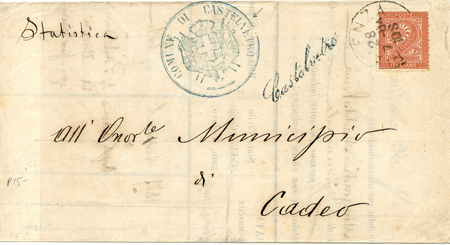 Statistica
COMUNE DI CASTELVETRO
Castelvetro
All' Onor.le Municipio
di
Cadeo
P15-